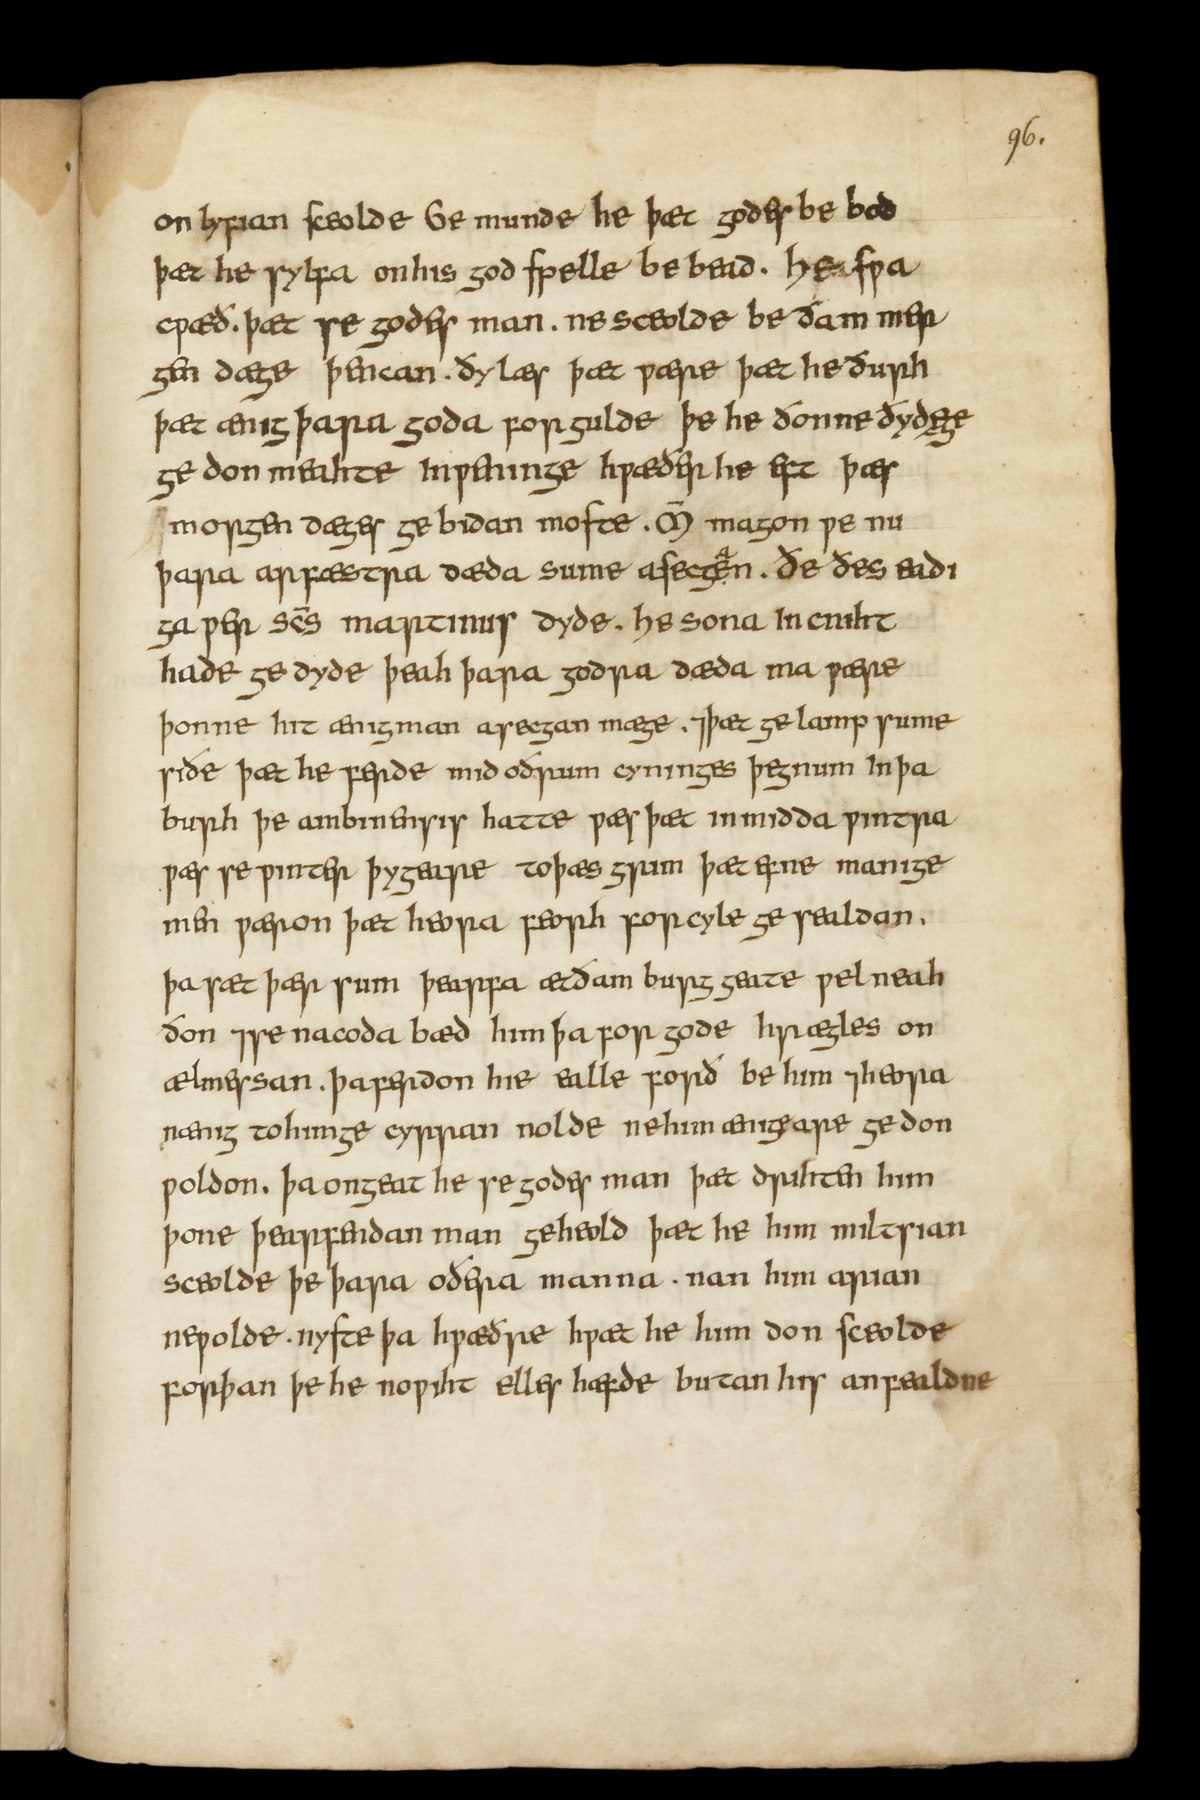 96.
on lyfian sceolde Ge munde he þæt godes be bod
þæt he sylfa on his god spelle be bead. he swa
cwæð. þæt se godes man. ne sceolde be ðam mer
gen dæge þencan. ðy læs þæt wære þæt he ðurh
þæt ænig þara goda forgulde þe he ðonne ðydge
ge don meahte In weninge hwæðer he eft þæs
morgen dæges ge bidan moste. M̄ magon we nu
þara arfæstra dæda sume asecgean. ðe ðes eadi
ga wer sc̄s martinus dyde. he sona In cniht
hade ge dyde þeah þara godra dæda ma wære
þonne hit ænig man asecgan mæge. ⁊þæt ge lamp sume
siðe þæt he ferde mid oðrum cyninges þegnum In þa
burh þe ambinensis hatte wæs þæt in midda wintra
wæs se winter þy geare to þæs grim þæt efne manige
men wæron þæt heora feorh for cyle ge sealdan.
þa sæt þær sum þearfa æt ðam burg geate wel neah
ðon ⁊se nacoda bæd him þa for gode hrægles on
ælmessan. þa ferdon hie ealle forð be him ⁊heora
nænig to himge cyrran nolde ne him ænigeare ge don
woldon. þa ongeat he se godes man þæt drihten him
þone þearfendan man geheold þæt he him miltsian
sceolde þe þara oðera manna. nan him arian
ne wolde. nyste þa hwæðre hwæt he him don sceolde
forþan þe he nowiht elles hæfde butan his anfealdne